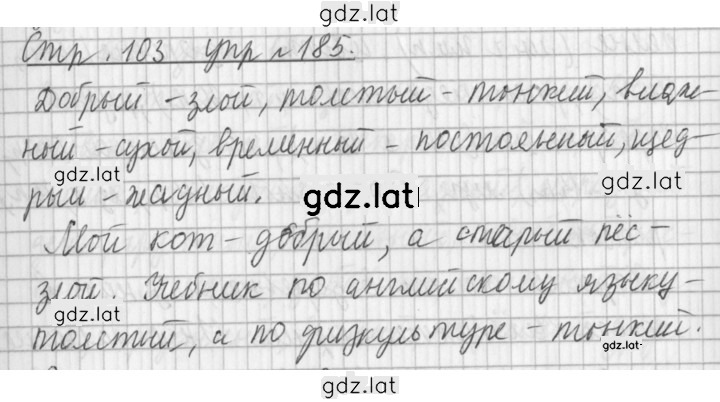 gdz.lat
Стр. 103 упр № 185.
Добрый - злой, толстый - тонкий, влаж-
gdz.lat
ный - сухой, временный - постоянный, щед-
gdz.lat
рый - жадный.
gdz.lat
Мой кот - добрый, а старый пёс -
злой. Учебник по английскому языку -
gdz.lat
толстый, а по физкультуре - тонкий.
gdz.lat
gdz.lat